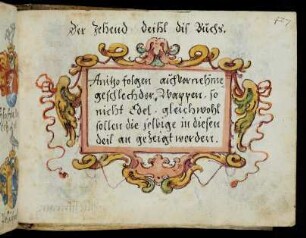 Der Zehend deihl dis Buchs.
Anitzo folgen auch vornehme
geschlechder, Wappen. so
nicht Edel. gleichwohl
sollen die selbige in diesen
deil an gezeigt werden.